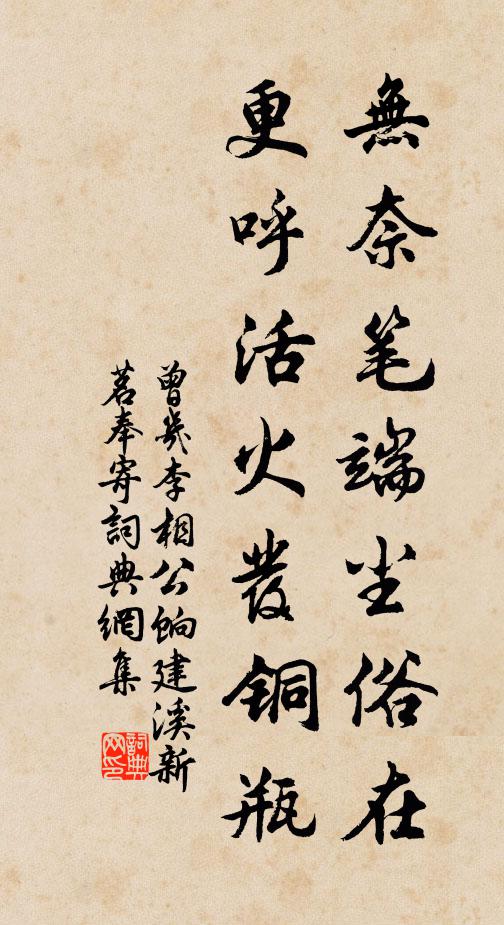 無奈笔端尘俗在
更呼活火發铜瓶
曾幾李相公餉建溪新
茗奉寄詞典網集
詞典網印